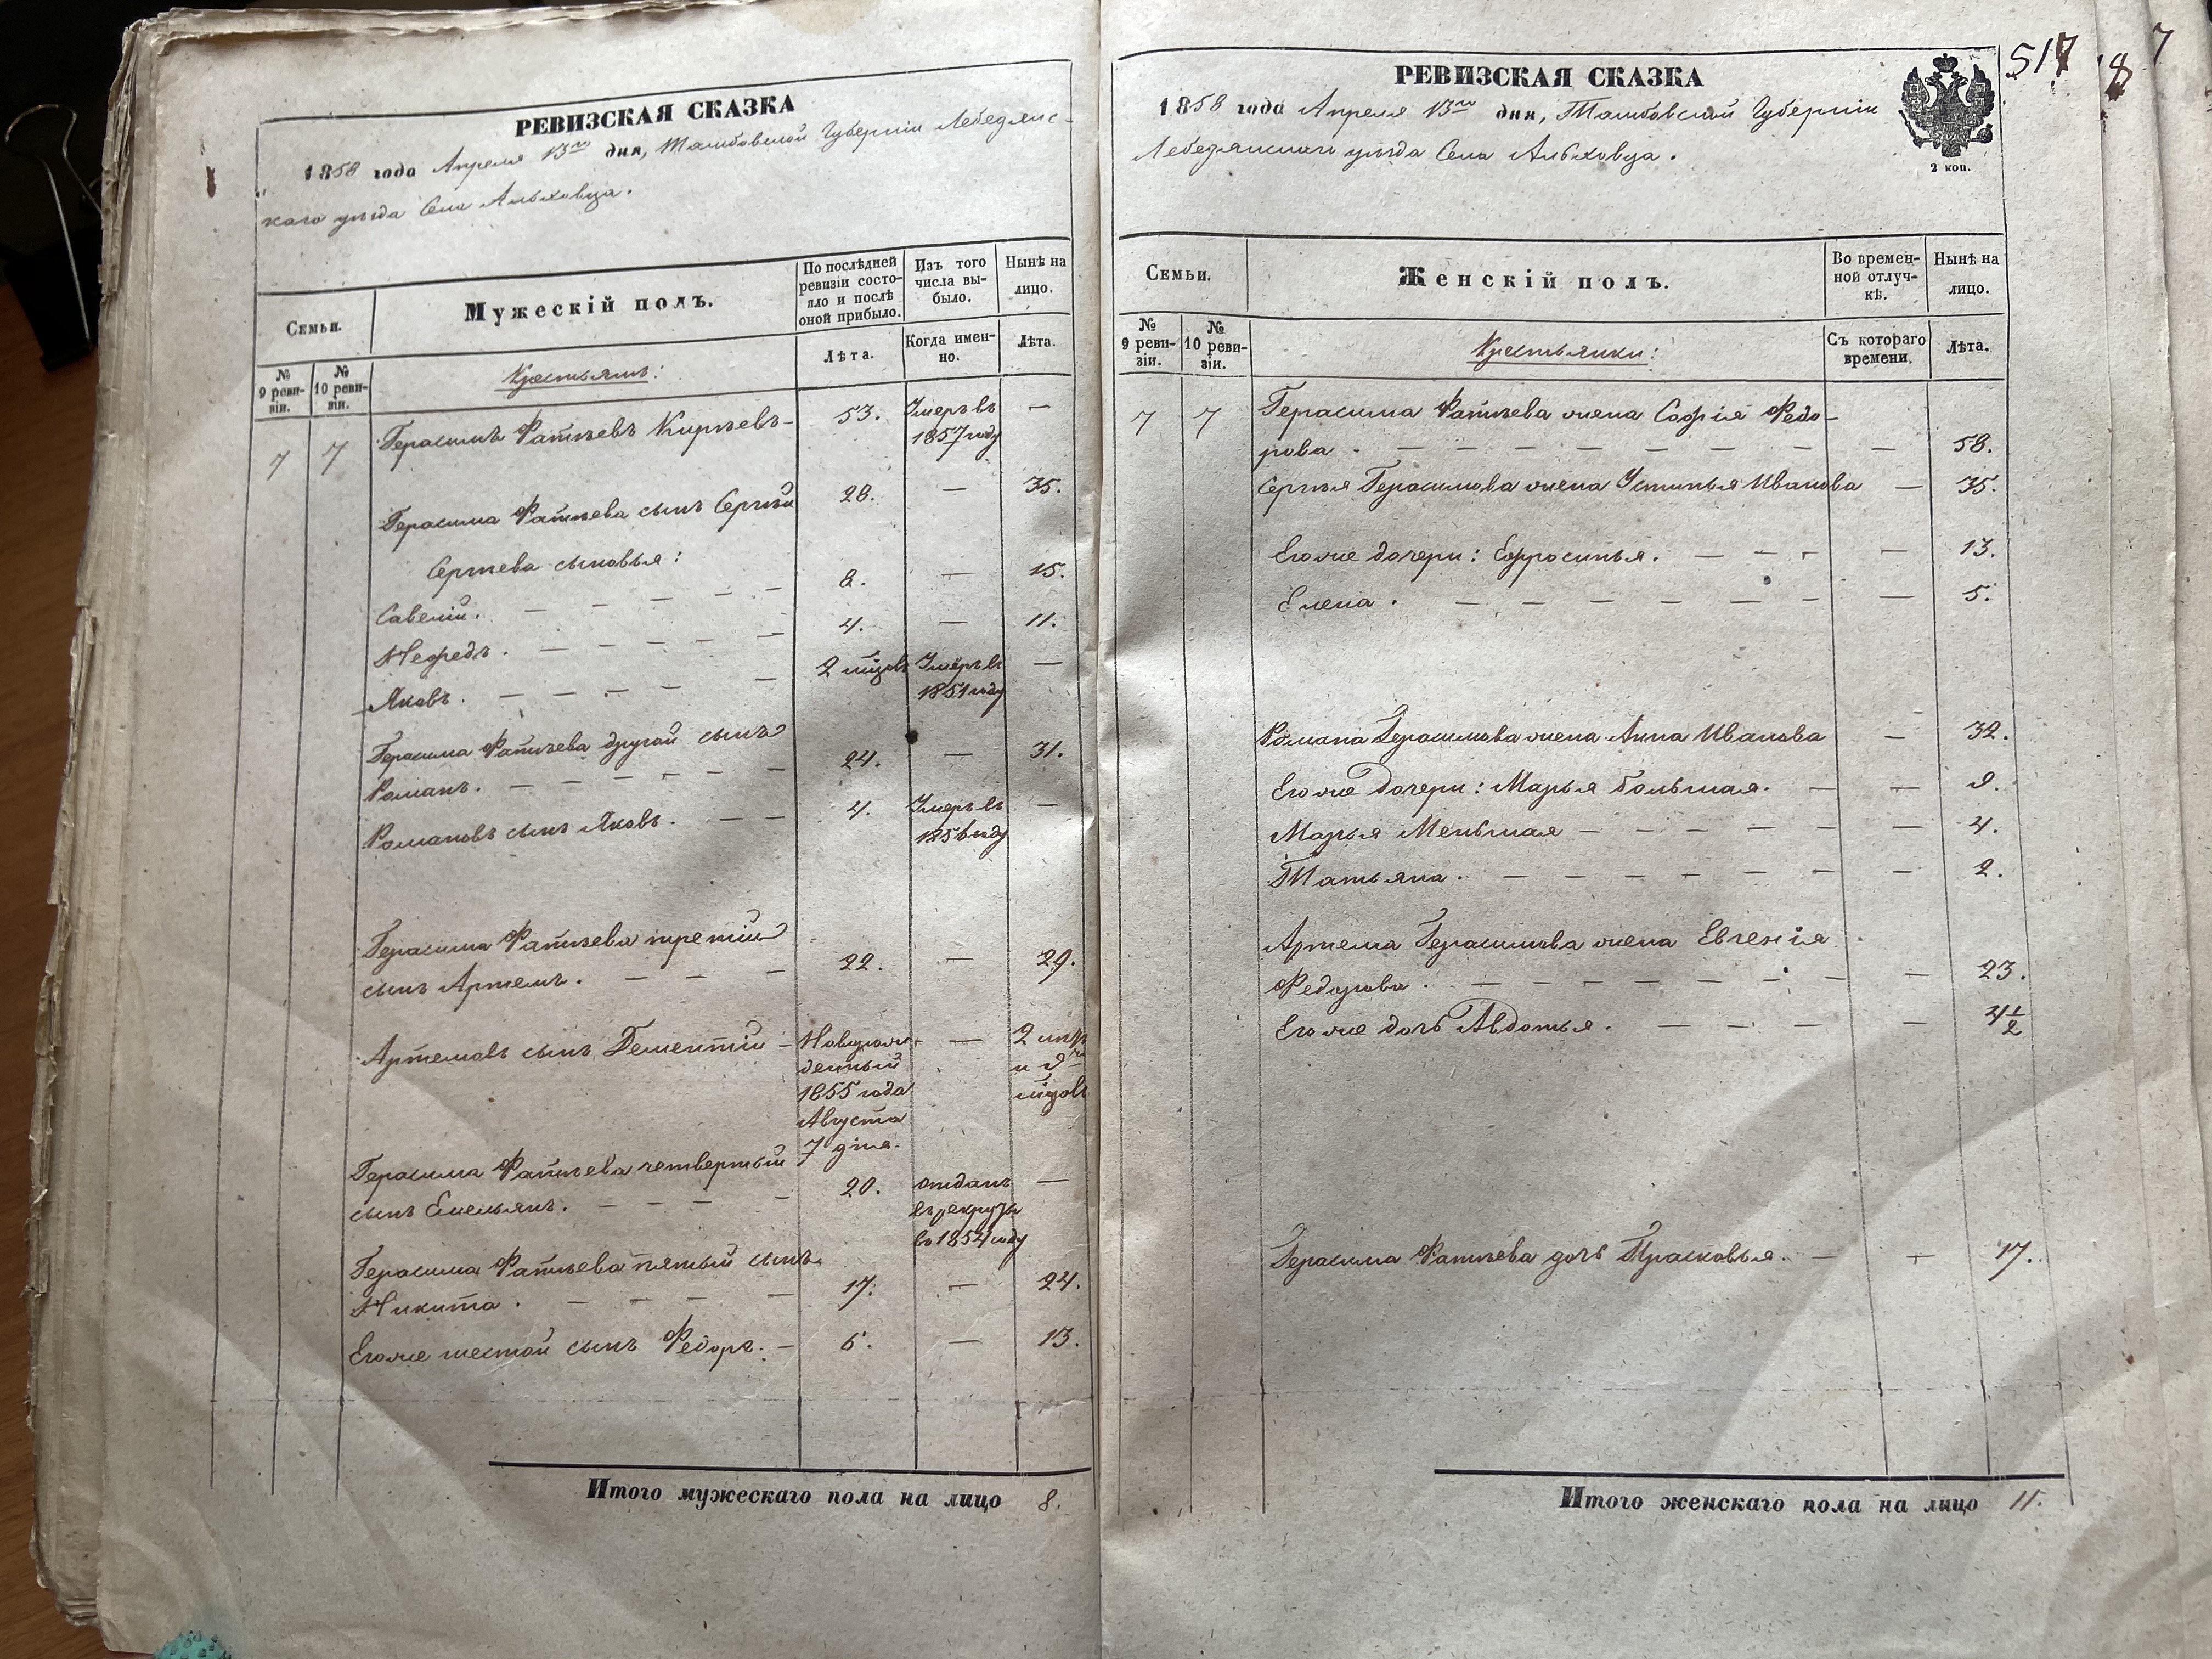 РЕВИЗСКАЯ СКАЗКА
1858 года Апреля 13го дня, Тамбовской Губернiи Лебедянс-
каго уѣзда Села Альховца.
Семьи.
Мужескiй полъ.
По послѣдней ревизiи состо-яло и послѣ оной прибыло.
Изъ того числа вы-было.
Нынѣ на лицо.
№ 9 реви-зiи.
№ 10 реви-зiи.
Крестьяне:
Лѣта.
Когда имен-но.
Лѣта.
7 7 Герасимъ Фатѣевъ Кирѣевъ - 53. Умеръ въ 1857 году —
Герасима Фатѣева сынъ Сергѣй 28. — 35.
Сергѣева сыновья:
Савелiй. — — — — — 8. — 15.
Нефедъ. — — — — 4. — 11.
Яковъ. — — — — — 2 мѣсцовъ Умеръ въ 1851 году —
Герасима Фатѣева другой сынъ
Романъ. — — — — — 24. — 31.
Романовъ сынъ Яковъ. — — 4. Умеръ въ 1856 году —
Герасима Фатѣева третiй
сынъ Артемъ. — — — 22. — 29.
Артемовъ сынъ Дементiй - Новорож-денный 1855 года Августа 7 дня. —
Герасима Фатѣева четвертый
сынъ Емельянъ. — — — 20. отданъ въ рекруты въ 1854 году —
Герасима Фатѣева пятый сынъ
Никита. — — — — 17. — 24.
Егоже шестой сынъ Федоръ. — 6. — 13.
Итого мужескаго пола на лицо 8.
517
8
7
РЕВИЗСКАЯ СКАЗКА
1858 года Апреля 13го дня, Тамбовской Губернiи
Лебедянскаго уѣзда Села Альховца.
2 коп.
Семьи.
Женскiй полъ.
Во времен-ной отлуч-кѣ.
Нынѣ на лицо.
№ 9 реви-зiи.
№ 10 реви-зiи.
Крестьянки:
Съ котораго времени.
Лѣта.
7 7 Герасима Фатѣева жена Софiя Федо-
рова. — — — — — — — 58.
Сергѣя Герасимова жена Устинья Иванова — 35.
Егоже дочери: Ефросинья. — — — — 13.
Елена. — — — — — — — 5.
Романа Герасимова жена Анна Иванова — 32.
Егоже дочери: Марья большая. — — 9.
Марья Меньшая — — — — — — 4.
Татьяна. — — — — — — — 2.
Артема Герасимова жена Евгенiя
Федорова. — — — — — — — — 23.
Егоже дочь Авдотья. — — — — — 4½
Герасима Фатѣева дочь Прасковья. — — 17.
Итого женскаго пола на лицо 11.